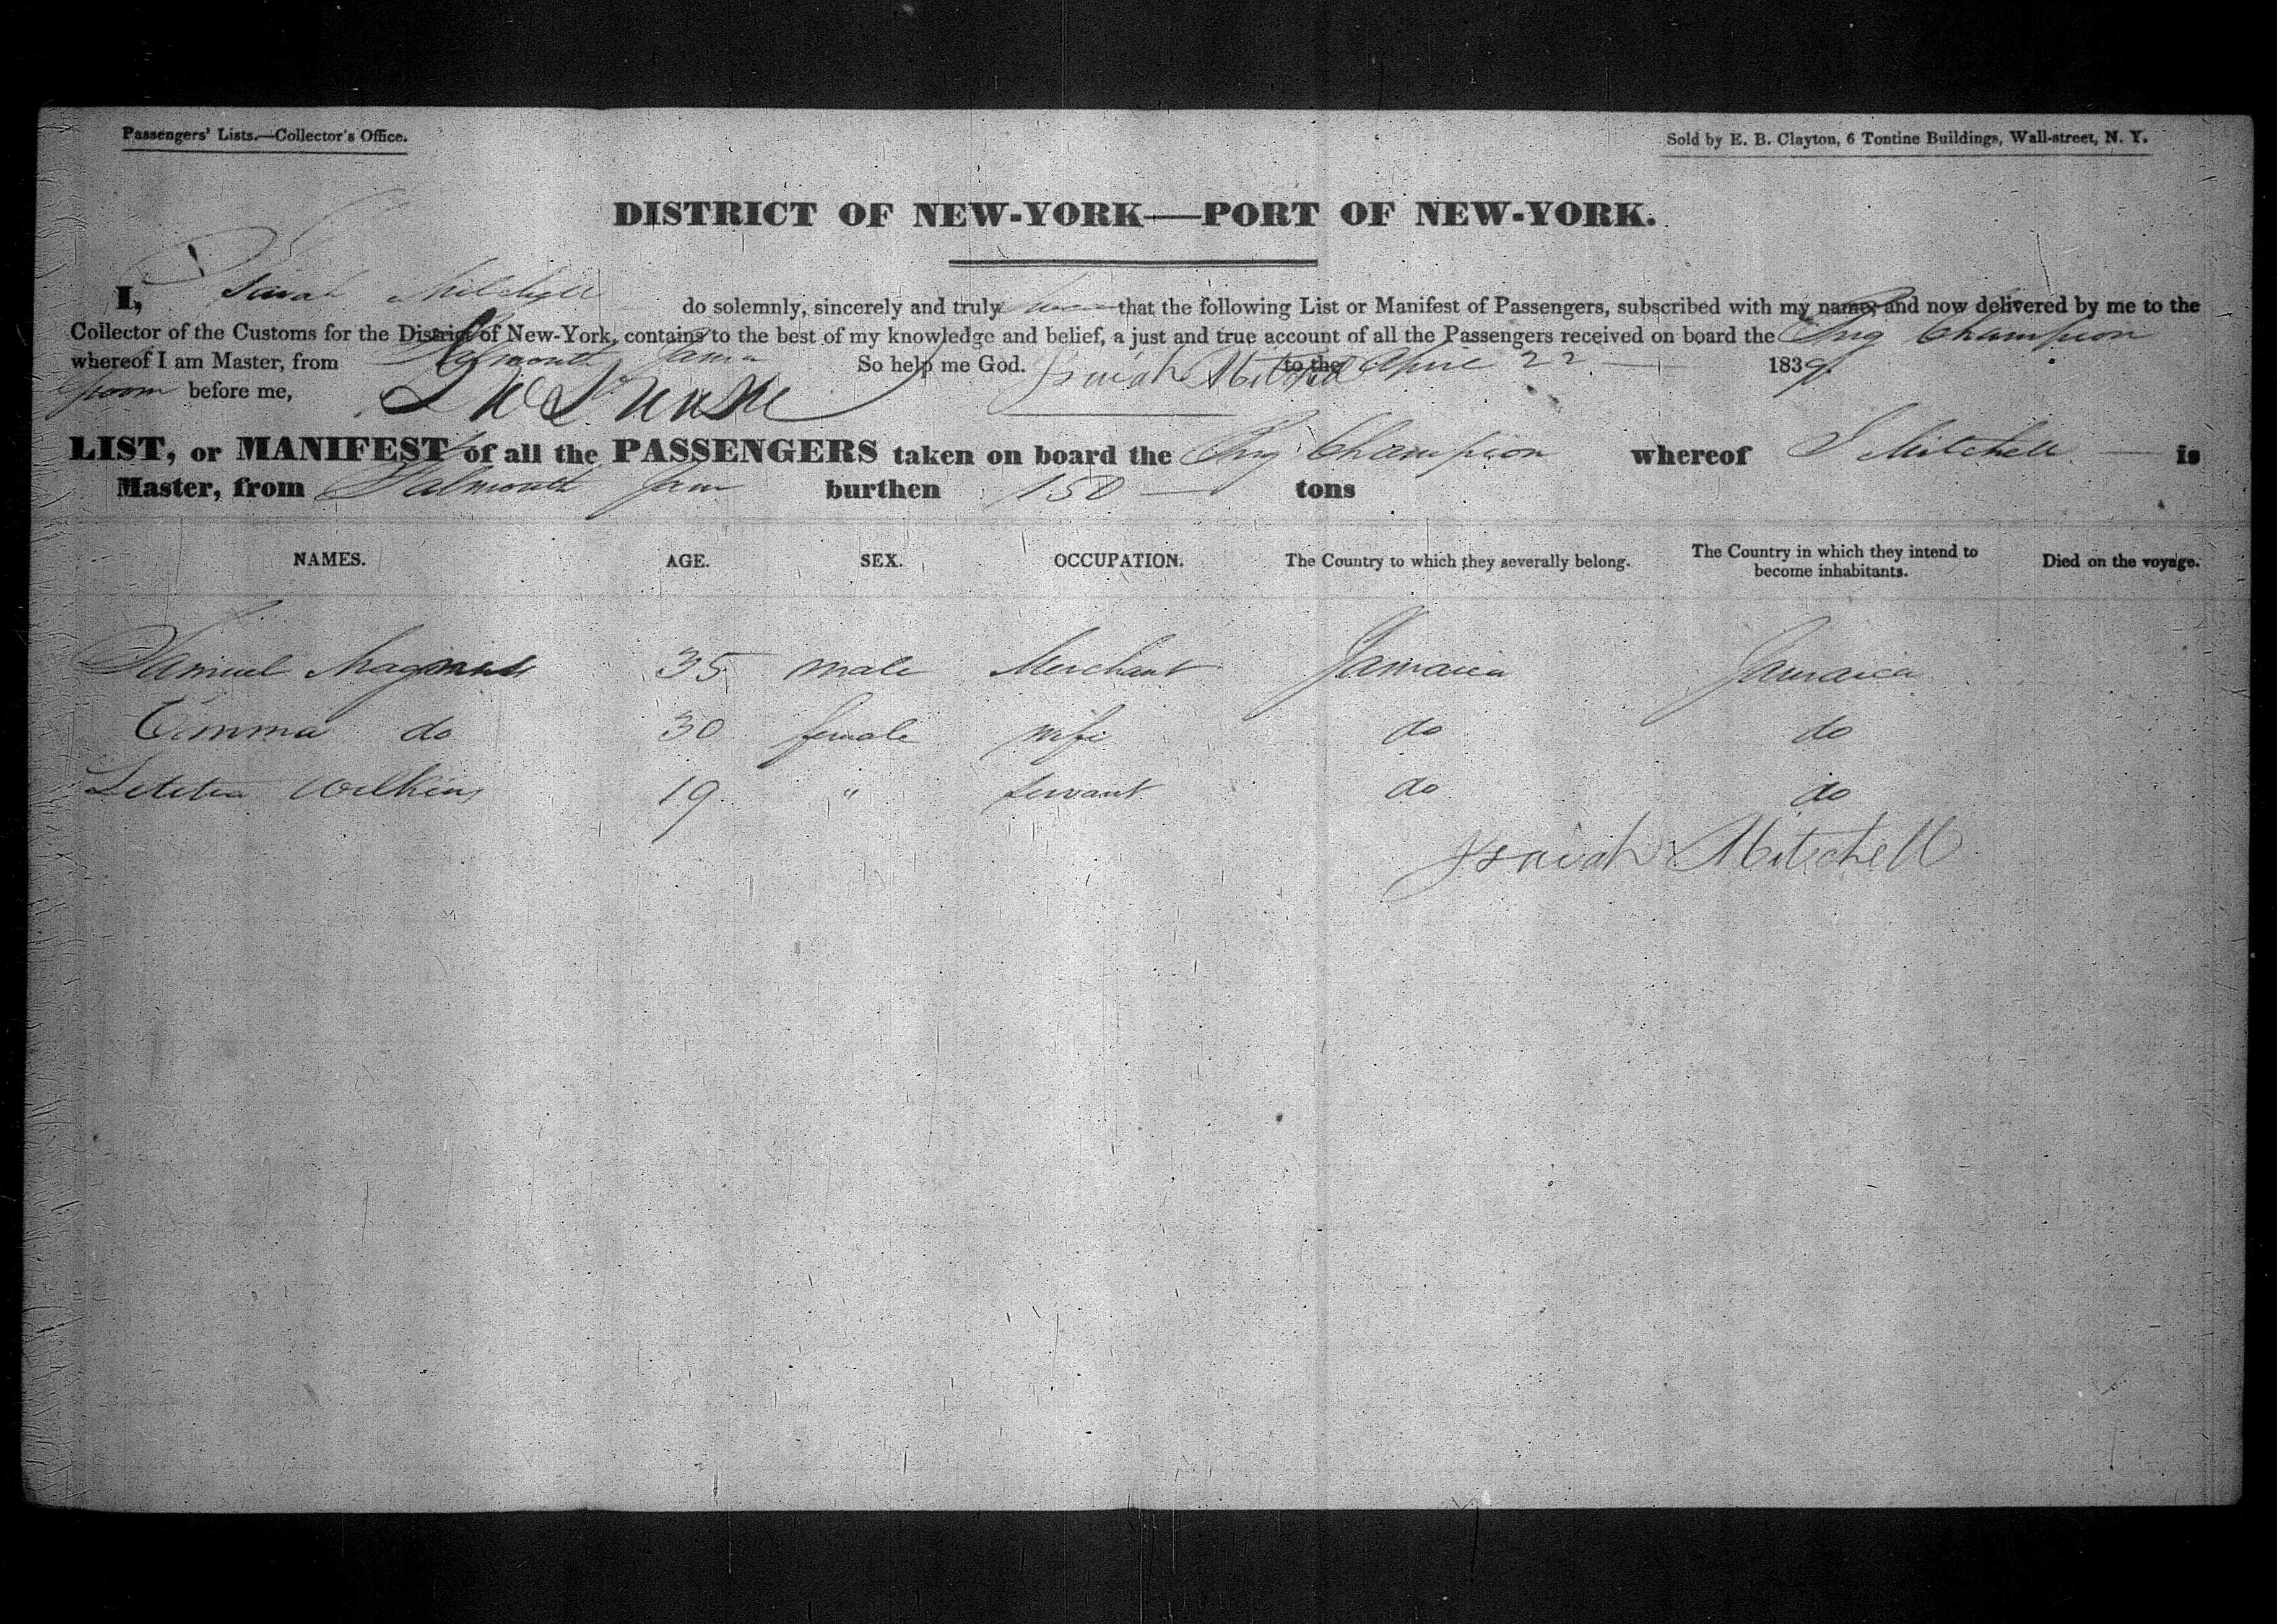 Passengers' Lists.—Collector's Office.
Sold by E. B. Clayton, 6 Tontine Buildings, Wall-street, N. Y.
DISTRICT OF NEW-YORK—PORT OF NEW-YORK.
I, Isaiah Mitchell do solemnly, sincerely and truly swear that the following List or Manifest of Passengers, subscribed with my name, and now delivered by me to the
Collector of the Customs for the District of New-York, contains to the best of my knowledge and belief, a just and true account of all the Passengers received on board the Brig Champion
whereof I am Master, from Falmouth Jama So help me God. Isaiah Mitchell to the April 22 1839.
Sworn before me,
LIST, or MANIFEST of all the PASSENGERS taken on board the Brig Champion whereof I Mitchell is
Master, from Falmouth Jam burthen 150 tons
NAMES. AGE. SEX. OCCUPATION. The Country to which they severally belong. The Country in which they intend to become inhabitants. Died on the voyage.
Samuel Magnus 35 male Merchant Jamaica Jamaica
Emma do 30 female wife do do
Letitia Wilkins 19 " servant do do
Isaiah Mitchell